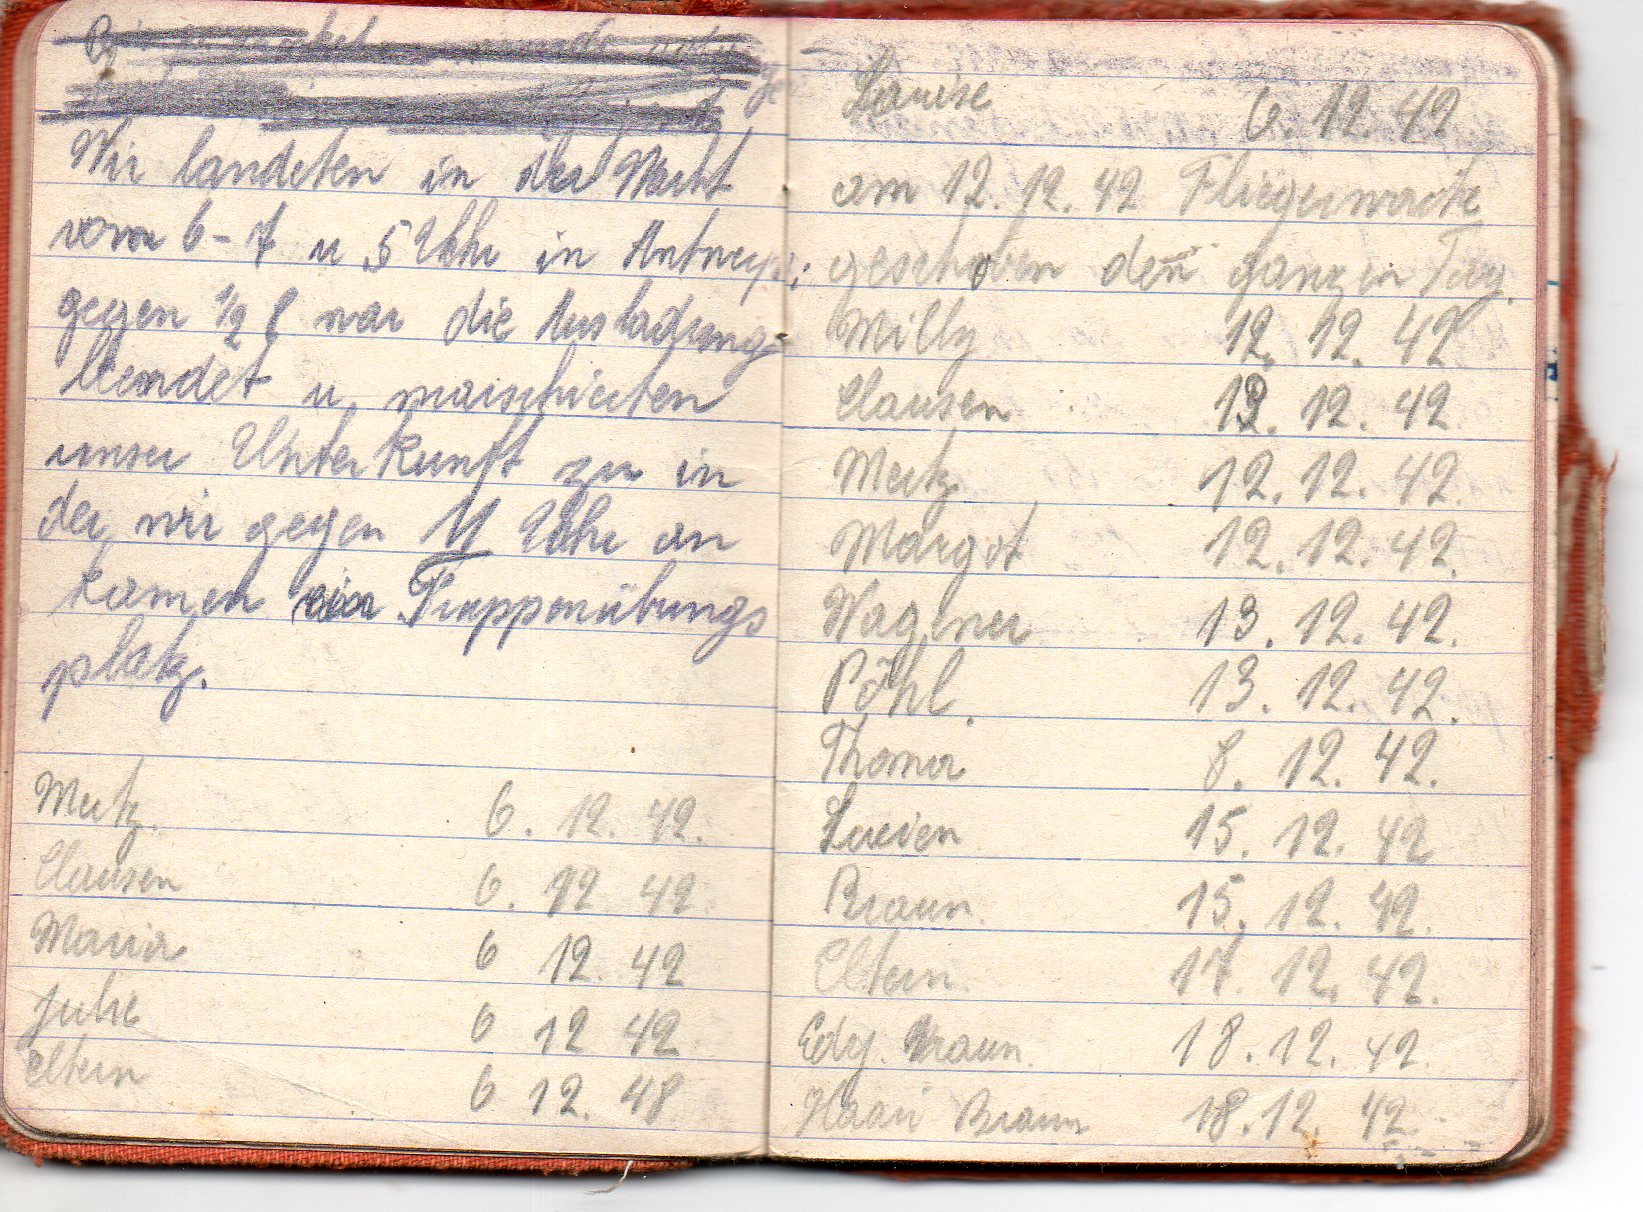 Wir landeten in der Nacht
vom 6-7 u 5 Uhr in Antwerp;
gegen 1/2 8 war die Ausladung
beendet u marschierten
unser Unterkunft zu in
der wir gegen 11 Uhr an
kamen Truppenübungs
platz.
Metz. 6. 12. 42.
Clausen 6. 12 42.
Maria 6 12. 42
Julie 6 12 42
Eltern 6 12. 48
Louise 6. 12. 42
am 12. 12. 42 Fliegerwache
geschoben den ganzen Tag.
Milly 12. 12. 42
Clausen 12. 12. 42
Metz 12. 12. 42.
Margot 12. 12. 42.
Wagner 13. 12. 42.
Pöhl. 13. 12. 42.
Thoma 8. 12. 42.
Lucien 15. 12. 42
Braun. 15. 12. 42.
Eltern. 17. 12. 42.
Edy. Braun. 18. 12. 42.
Braun 18. 12. 42.